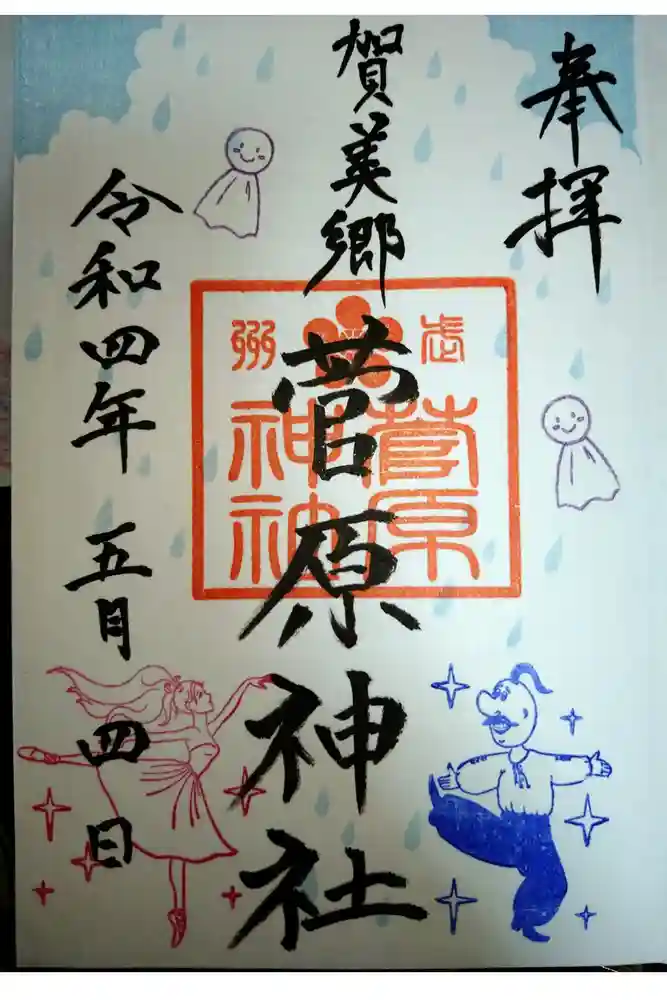 奉拝
賀美郷
菅原神社
武州
菅原
神社
令和四年 五月 四日